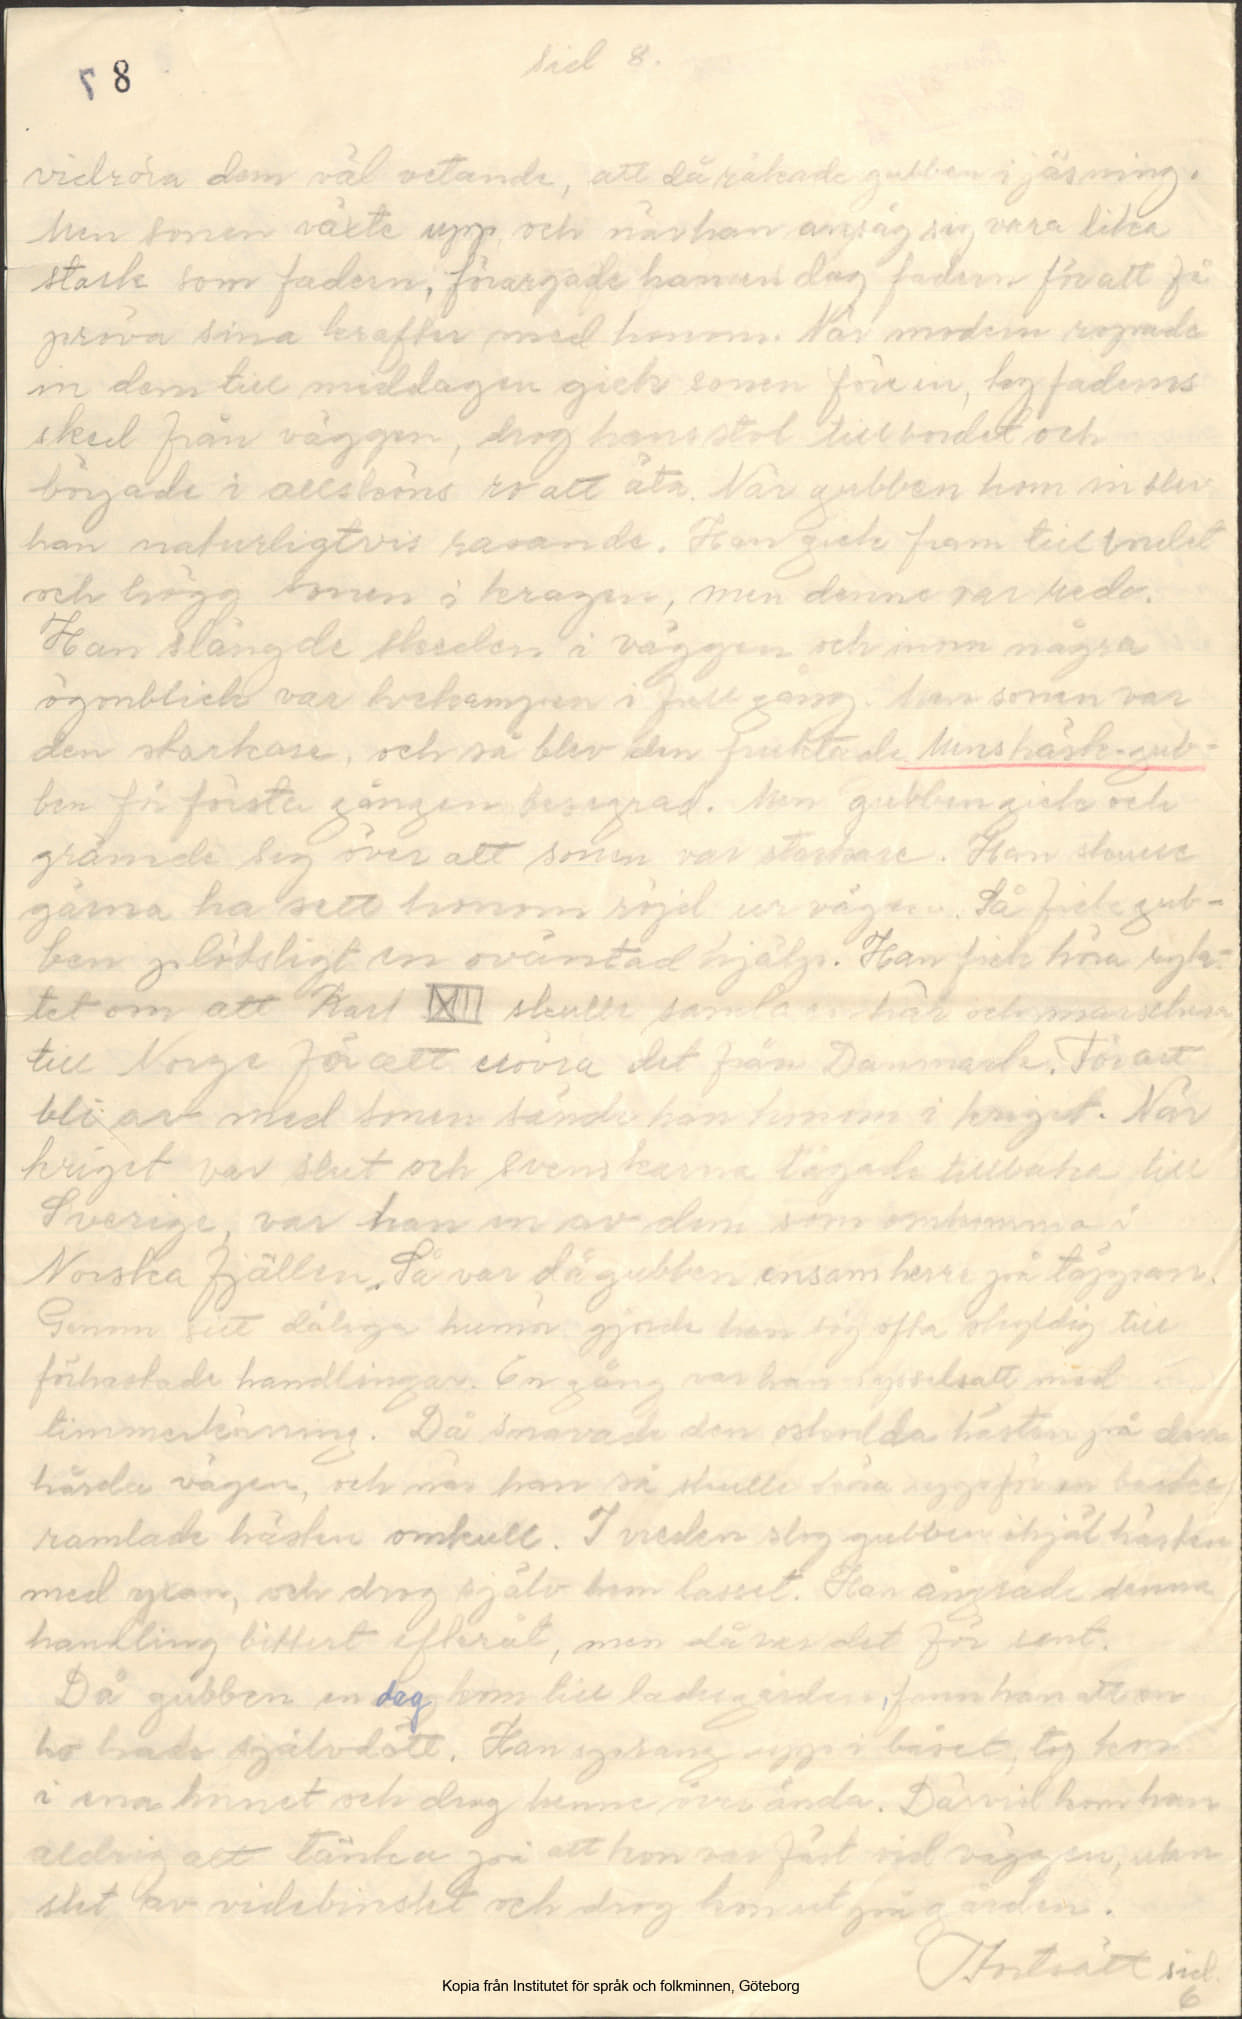 8 7
sid 8.
vidröra dem väl vetande, att då råkade gubben i jäsning.
Men sonen växte upp, och när han ansåg sig vara lika
stark som fadern, förargade han en dag fadern för att få
pröva sina krafter med honom. När modern ropade
in dem till middagen gick sonen före in, tog faderns
sked från väggen, drog hans stol till bordet och
började i allsköns ro att äta. När gubben kom in blev
han naturligtvis rasande. Han gick fram till bordet
och högg sonen i kragen, men denne var redo.
Han slängde skeden i väggen och inom några
ögonblick var tvekampen i full gång. Men sonen var
den starkare, och så blev den fruktade Munshäsk-gub-
ben för första gången besegrad. Men gubben gick och
grämde sig över att sonen var starkare. Han skulle
gärna ha sett honom röjd ur vägen. Så fick gub-
ben plötsligt en oväntad hjälp. Han fick höra ryk-
tet om att Karl XII skulle samla en här och marschera
till Norge för att erövra det från Danmark. För att
bli av med sonen sände han honom i kriget. När
kriget var slut och svenskarna tågade tillbaka till
Sverige, var han en av dem som omkommo i
Norska fjällen. Så var då gubben ensam herre på täppan.
Genom sitt dåliga humör gjorde han sig ofta skyldig till
förhastade handlingar. En gång var han sysselsatt med
timmerkörning. Då snavade den oskodda hästen på den
hårda vägen, och när han så skulle köra uppför en backe,
ramlade hästen omkull. I vreden slog gubben ihjäl hästen
med yxan, och drog själv hem lasset. Han ångrade denna
handling bittert efteråt, men då var det för sent.
Då gubben en dag kom till ladugården, fann han att en
ko hade självdött. Han sprang upp i båset, tog kon
i ena hornet och drog henne över ända. Därvid kom han
aldrig att tänka på att kon var fäst vid väggen, utan
slet av videbindslet och drog kon ut på gården.
Fortsätt sid.
6
Kopia från Institutet för språk och folkminnen, Göteborg